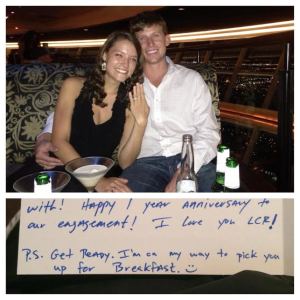 with! Happy 1 year anniversary to
our engagement! I love you LCR!
P.S. Get Ready. I'm on my way to pick you
up for Breakfast. :)